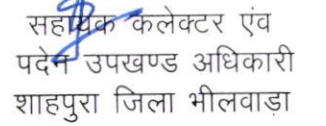 सहायक कलेक्टर एंव
पदेन उपखण्ड अधिकारी
शाहपुरा जिला भीलवाडा